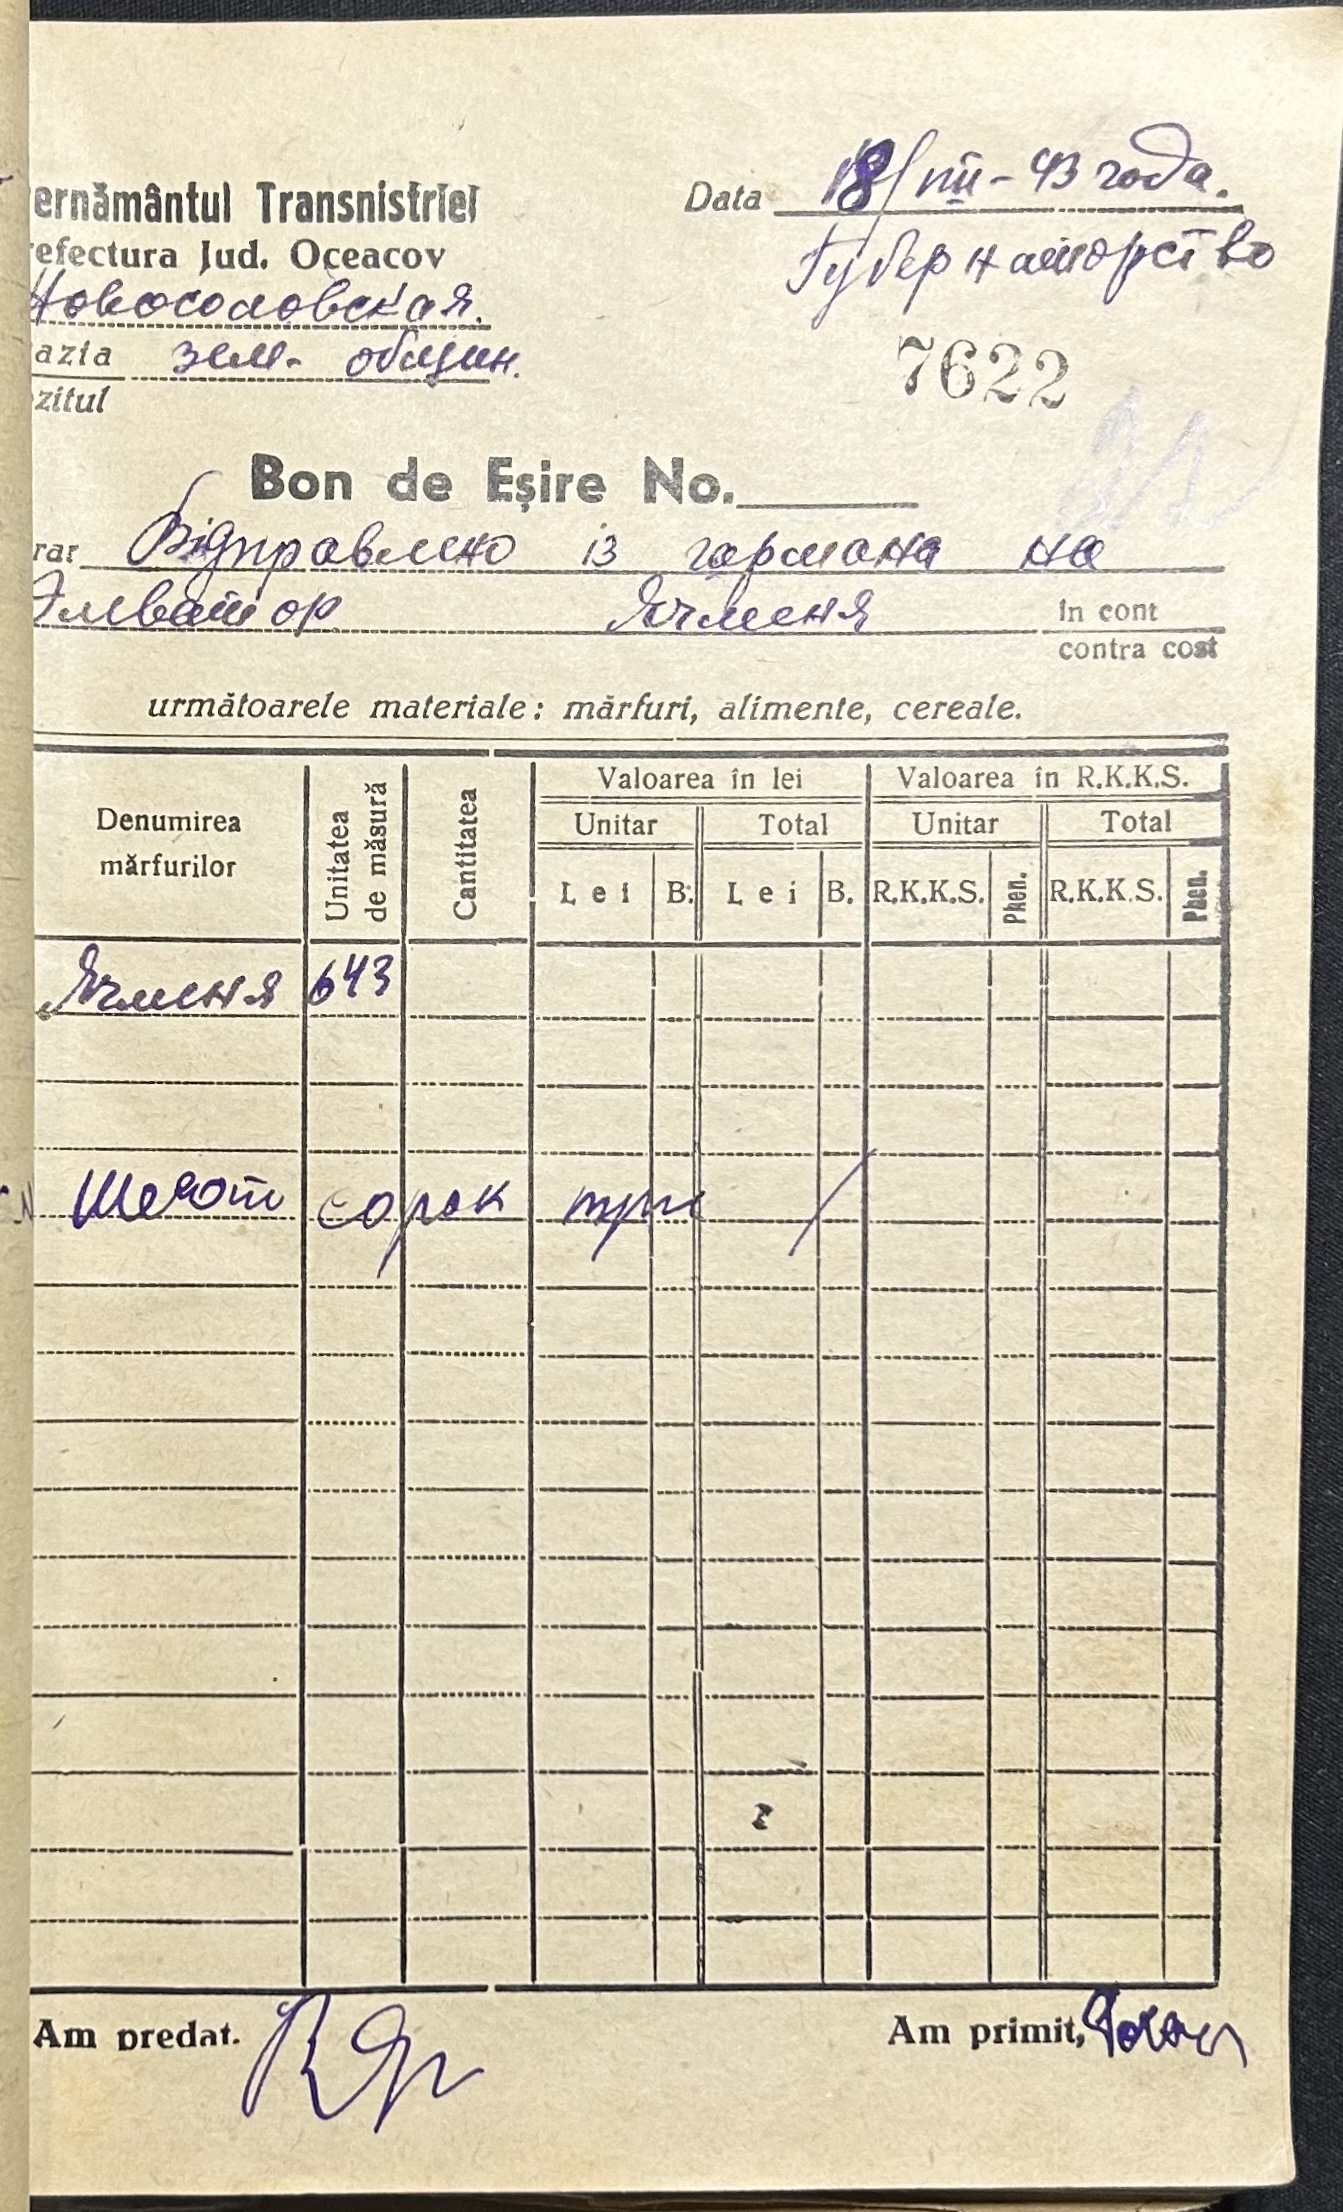 ernământul Transnistriei
Data 18/VIII - 43 года.
efectura Jud. Oceacov
Губернаторство
Новосоловская.
azia зем- общин.
zitul
7622
Bon de Eşire No.
rar Відправлено із гармана на
Элватор Ячменя in cont
contra cost
următoarele materiale: mărfuri, alimente, cereale.
Denumirea mărfurilor
Unitatea de măsură
Cantitatea
Valoarea în lei
Valoarea în R.K.K.S.
Unitar Total Unitar Total
Lei B. Lei B. R.K.K.S. Phen. R.K.K.S. Phen.
Ячменя 643
сорок три
Am predat.
Am primit,